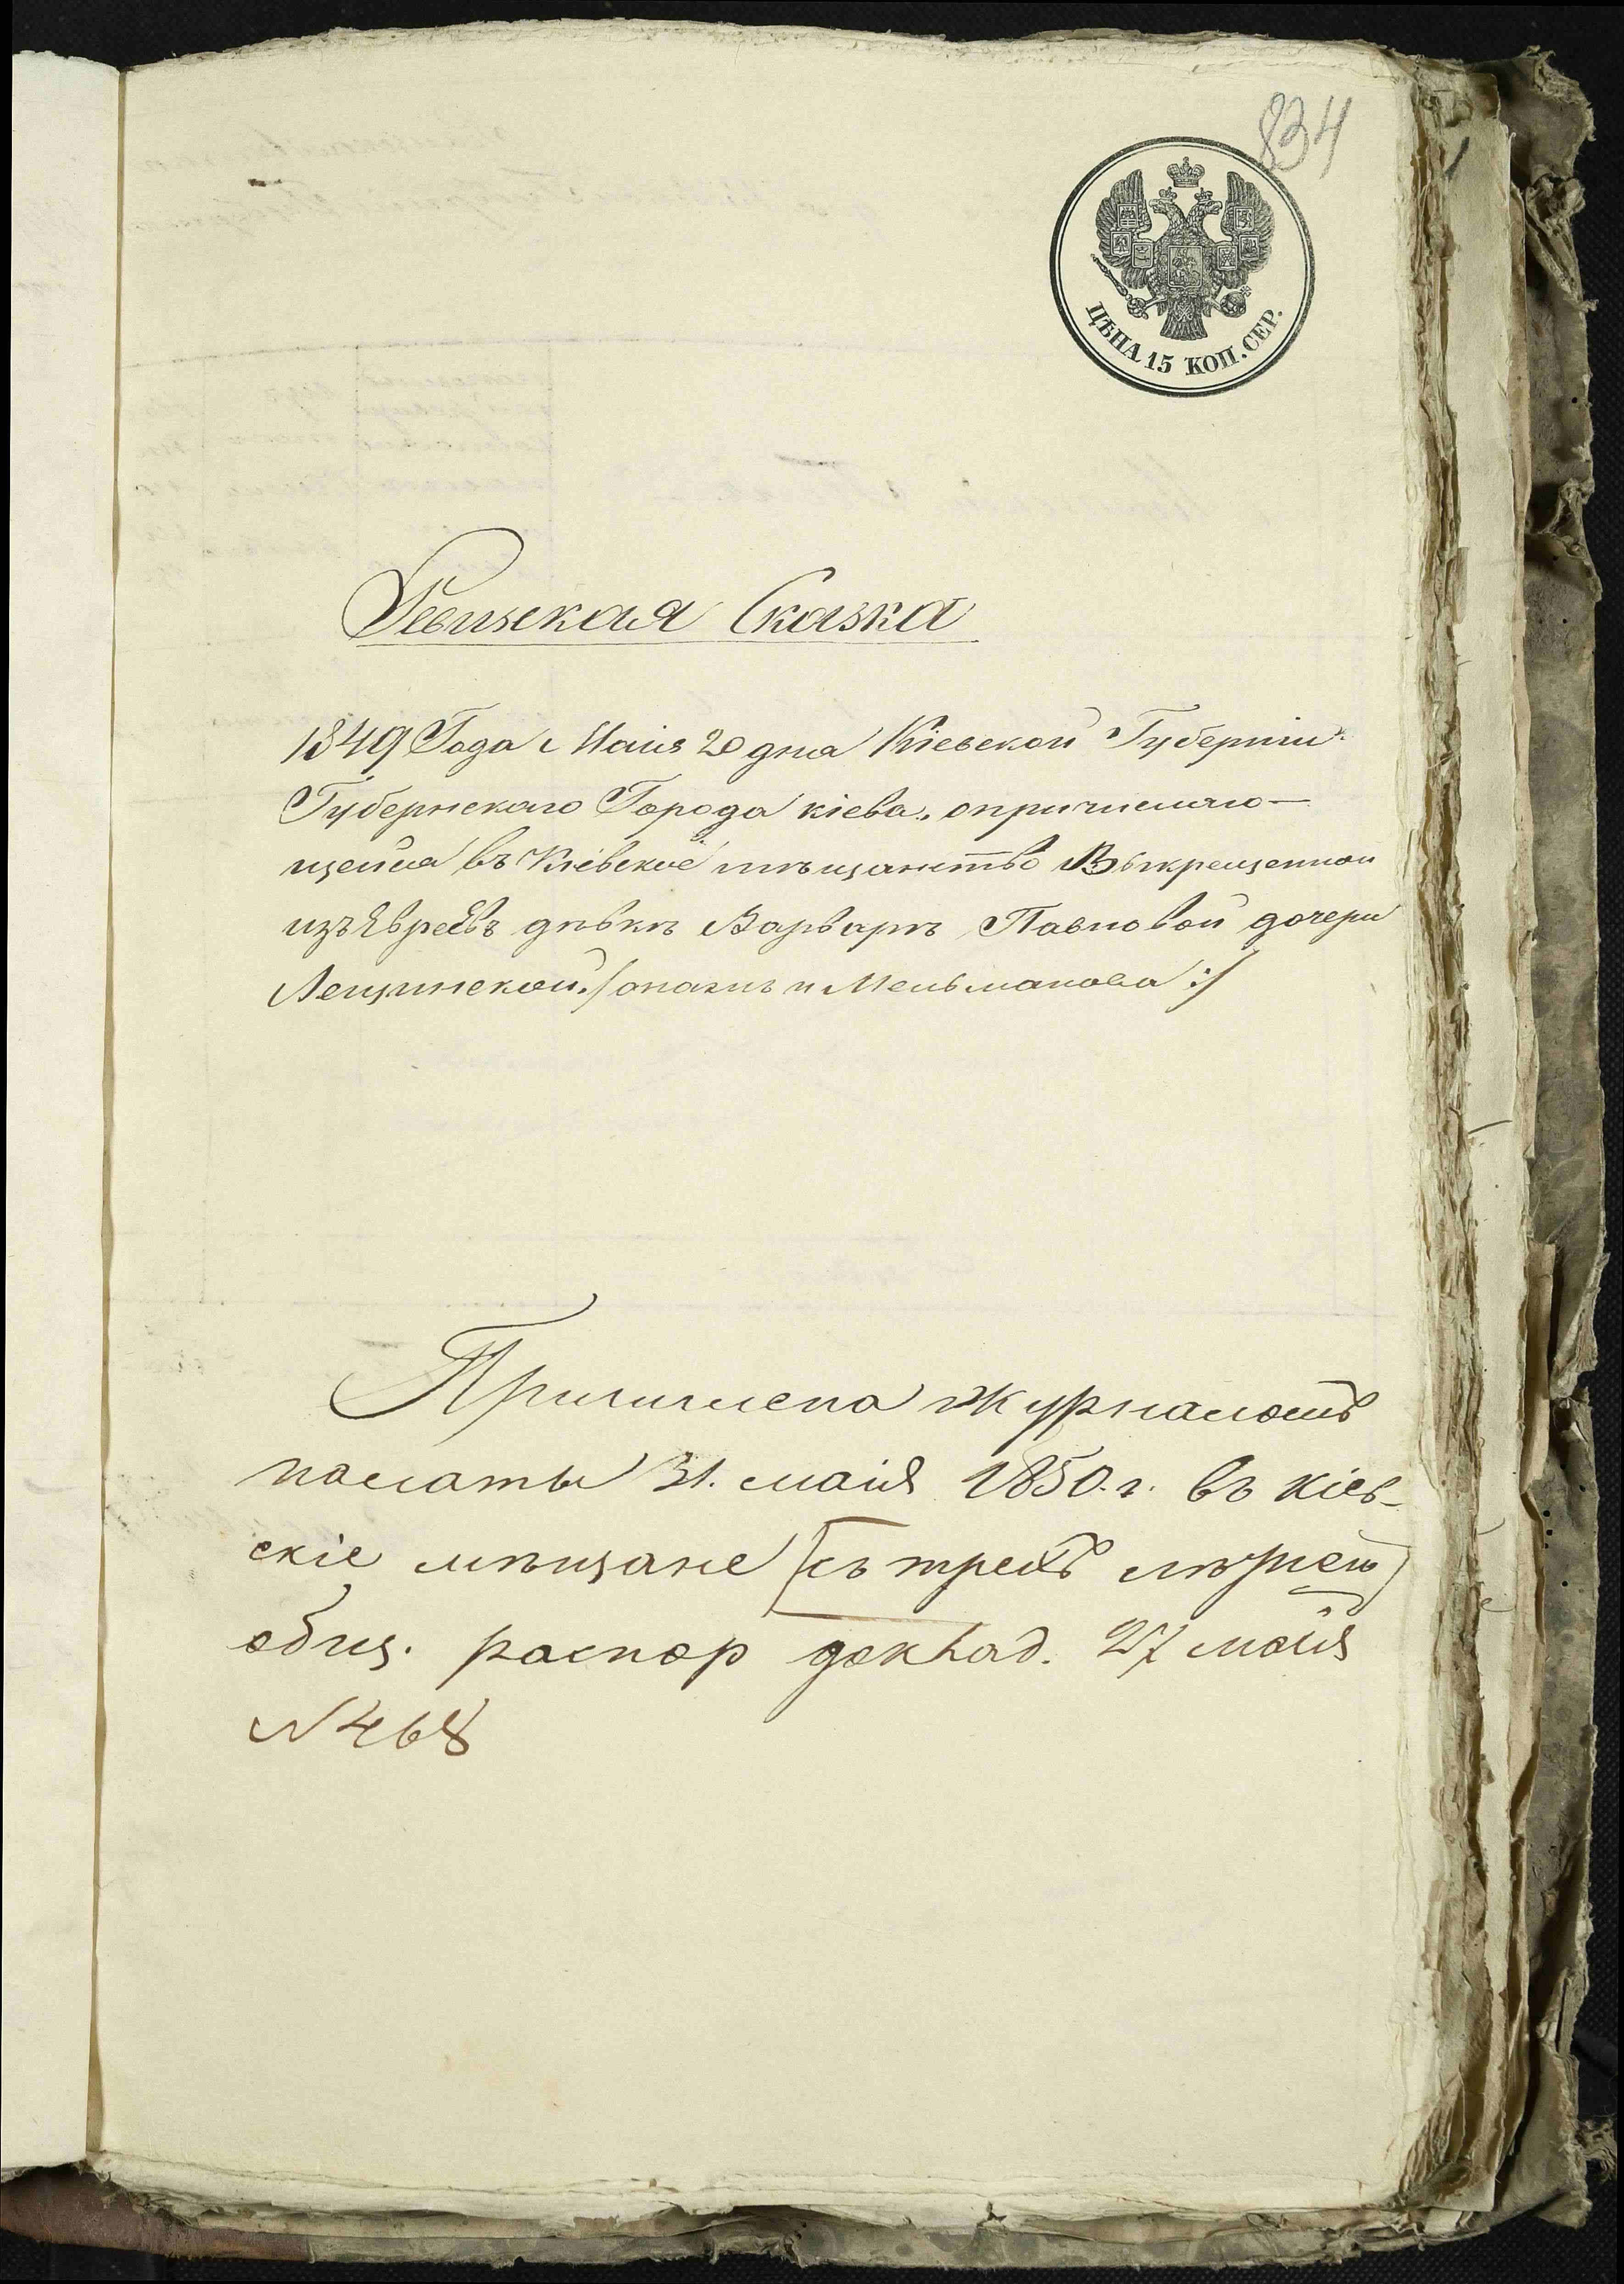 834
ЦѢНА 15 КОП. СЕР.
Ревизская Сказка
1849 Года Маия 20 дня Кіевской Губерніи
Губернскаго Города Кіева, опричисляю-
щейся въ Кіевское мѣщанство Выкрещенной
изъ Евреевъ дѣвкѣ Варварѣ Павловой дочери
Лещинской /: она же и Мельманова :/
Причислена журналомъ
палаты 31. маія 1850. г. въ Кіев-
скіе мѣщане
общ. распор доклад. 27 маія
N 468